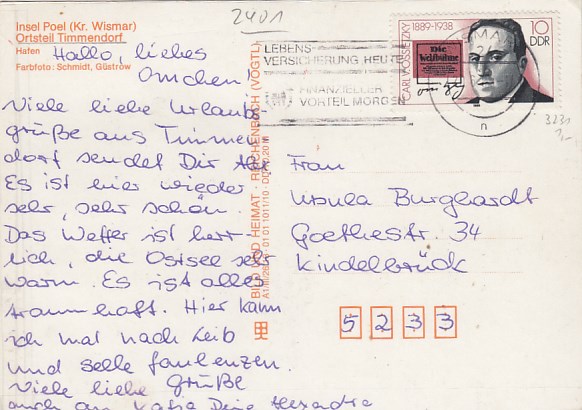 2401
Insel Poel (Kr. Wismar)
Ortsteil Timmendorf
Hafen
Farbfoto: Schmidt, Güstrow
Hallo, liebes
Omchen!
Viele liebe Urlaubs-
grüße aus Timmen
dorf sendet Dir
Es ist hier wieder
sehr, sehr schön.
Das Wetter ist herr-
lich, die Ostsee sehr
warm. Es ist alles
traumhaft. Hier kann
ich mal nach Leib
und Selle faulenzen.
Viele liebe Grüße
auch an Katja Deine Alexandra
BILD UND HEIMAT · REICHENBACH (VOGTL)
LEBENS-
VERSICHERUNG, HEUTE
FINANZIELLER
VORTEIL MORGEN
CARL V. OSSIETZKY 1889-1938
Die
Weltbühne
10
DDR
n
3231
Frau
Ursula Burghardt
Goethestr. 34
Kindelbrück
5 2 3 3